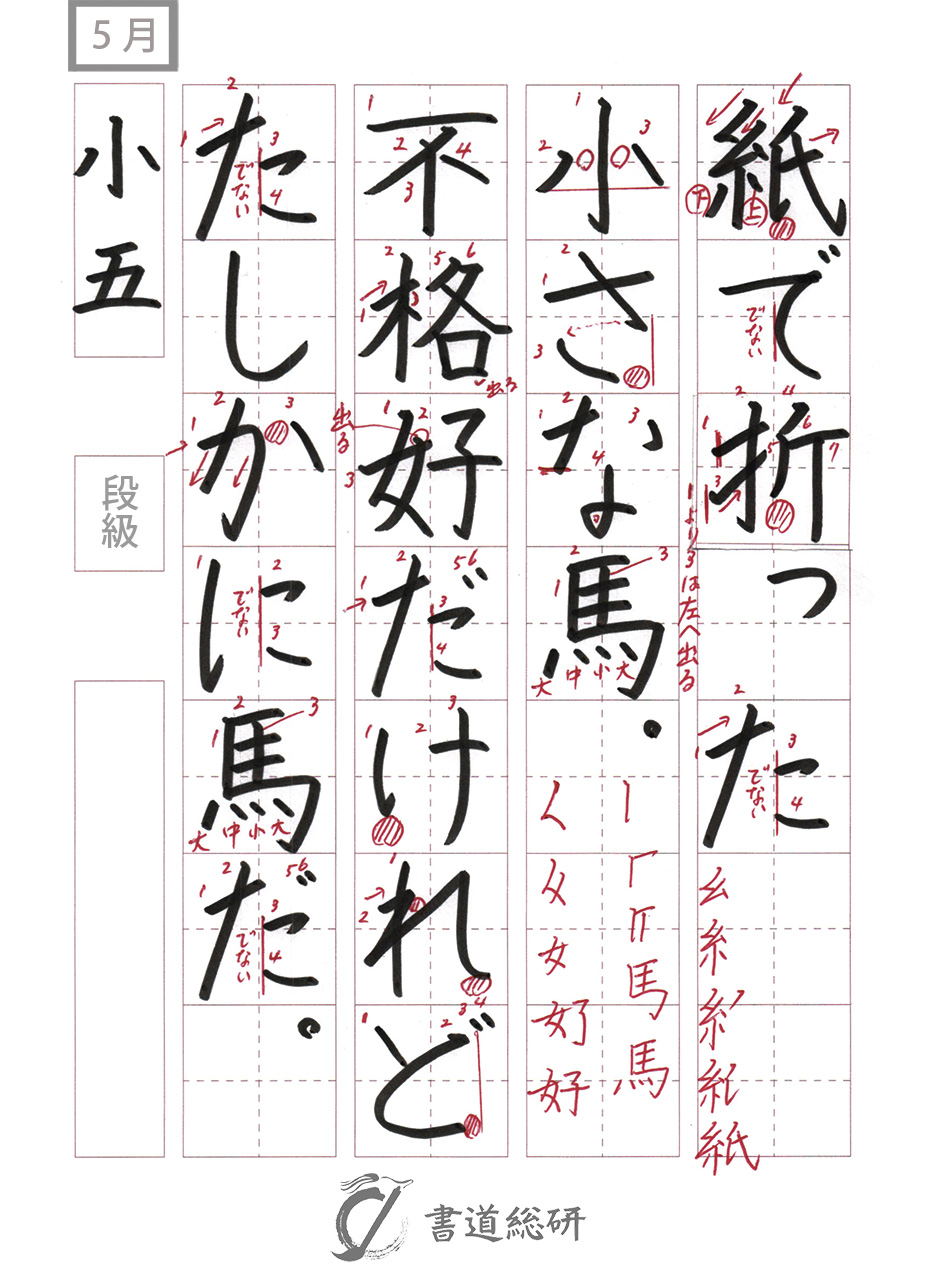 5月
紙で折った
小さな馬。
不格好だけれど
たしかに馬だ。
小五
段級
下
上
でない
1より3は左へ出る
でない
幺
糸
紙
大
中
小
大
馬
馬
女
好
好
出る
出る
でない
でない
大
中
小
大
でない
書道総研